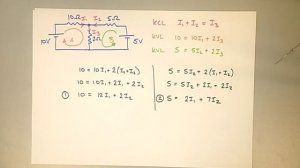 10Ω I₁ I₂ 5Ω
10V A I₃ 2Ω B 5V
KCL I₁ + I₂ = I₃
KVL 10 = 10I₁ + 2I₃
KVL 5 = 5I₂ + 2I₃
10 = 10I₁ + 2(I₁+I₂)
10 = 10I₁ + 2I₁ + 2I₂
① 10 = 12I₁ + 2I₂
5 = 5I₂ + 2(I₁+I₂)
5 = 5I₂ + 2I₁ + 2I₂
② 5 = 2I₁ + 7I₂